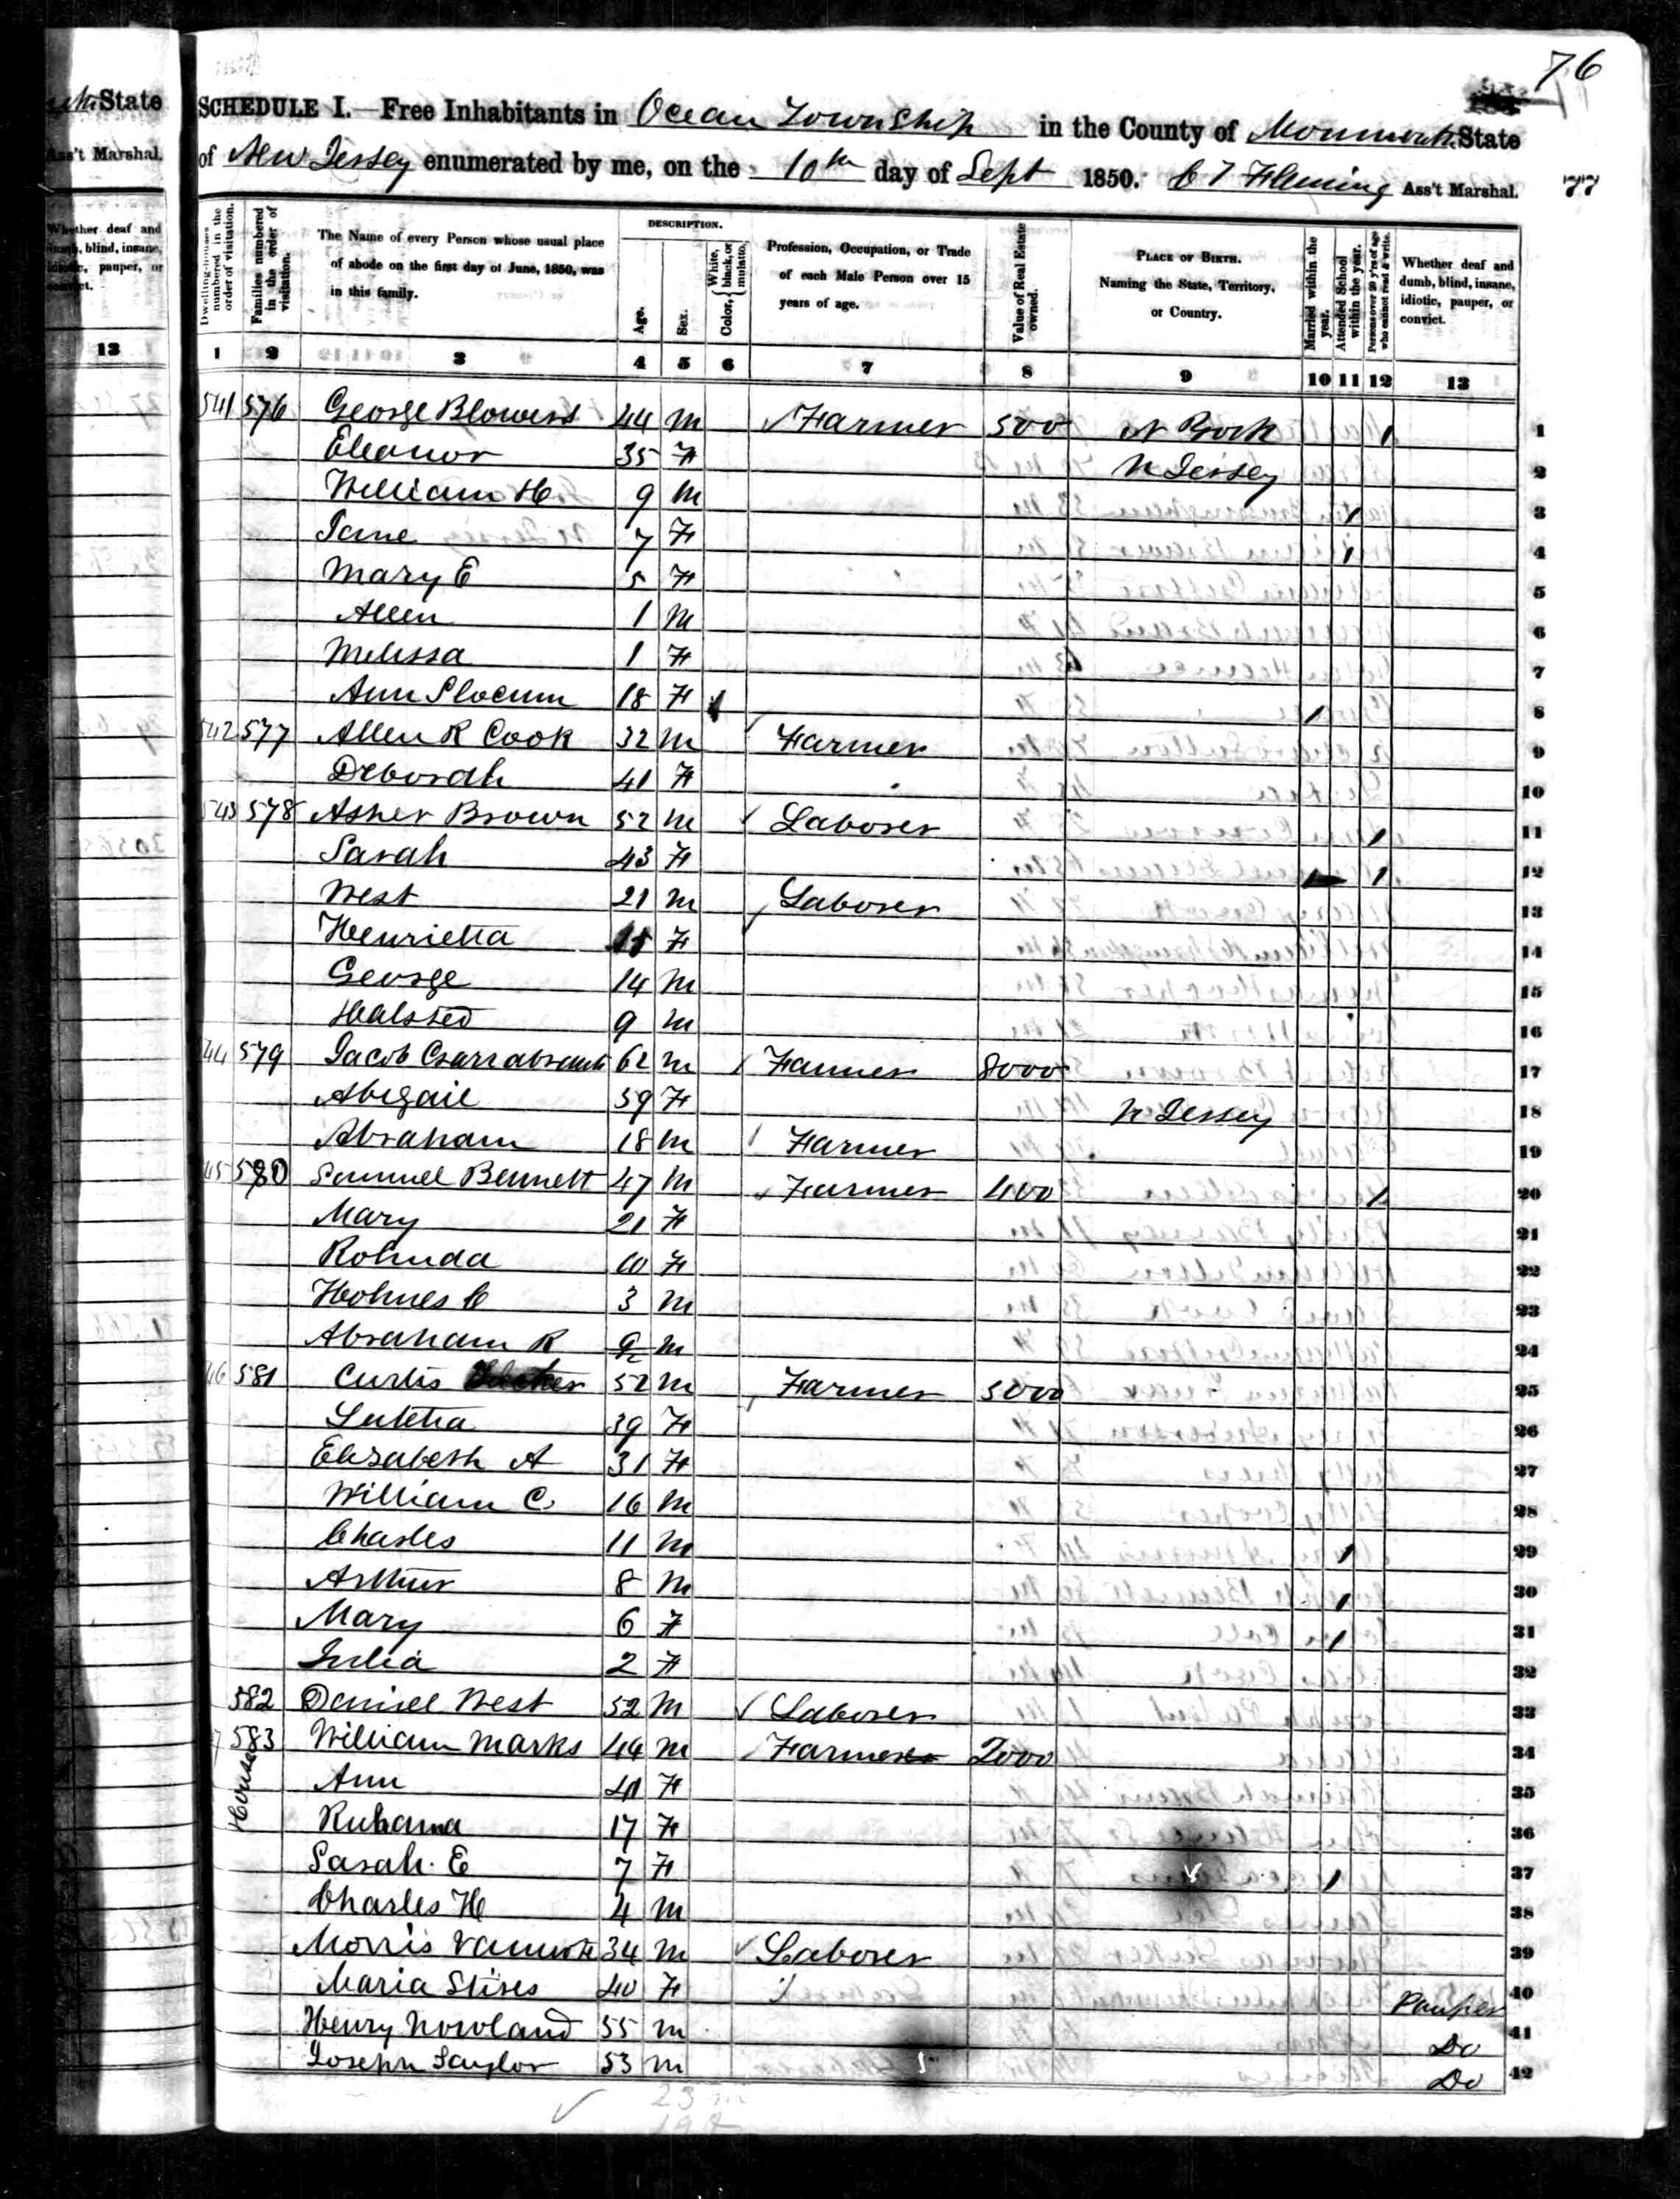 76
SCHEDULE I.—Free Inhabitants in Ocean Township in the County of Monmouth State
of New Jersey enumerated by me, on the 10th day of Sept 1850. C T Fleming Ass't Marshal.
77
State
Ass't Marshal.
Whether deaf and dumb, blind, insane, idiotic, pauper, or convict.
13
Dwelling-houses numbered in the order of visitation.
Families numbered in the order of visitation.
The Name of every Person whose usual place of abode on the first day of June, 1850, was in this family.
DESCRIPTION.
Age.
Sex.
Color, { White, black, or mulatto.
Profession, Occupation, or Trade of each Male Person over 15 years of age.
Value of Real Estate owned.
PLACE OF BIRTH. Naming the State, Territory, or Country.
Married within the year.
Attended School within the year.
Persons over 20 y'rs of age who cannot read & write.
Whether deaf and dumb, blind, insane, idiotic, pauper, or convict.
1 2 3 4 5 6 7 8 9 10 11 12 13
541 576 George Blowers 44 M Farmer 500 N York 1 1
Eleanor 35 F N Jersey 2
William H 9 M 1 3
Jane 7 F 1 4
Mary E 5 F 5
Allen 1 M 6
Melissa 1 F 7
Ann Slocum 18 F 1 8
542 577 Allen R Cook 32 M Farmer 9
Deborah 41 F 10
543 578 Asher Brown 52 M Laborer 1 11
Sarah 43 F 1 12
West 21 M Laborer 13
Henrietta F 14
George 14 M 15
Halsted 9 M 16
44 579 Jacob 62 M Farmer 8000 17
Abigail 59 F N Jersey 18
Abraham 18 M Farmer 19
45 580 Samuel Bennett 47 M Farmer 400 1 20
Mary 21 F 21
Rolinda 10 F 22
Holmes C 3 M 23
Abraham R M 24
46 581 Curtis 52 M Farmer 5000 25
Lutetia 39 F 26
Elizabeth A 31 F 27
William C. 16 M 28
Charles 11 M 1 29
Arthur 8 M 1 30
Mary 6 F 1 31
Julia 2 F 32
582 Daniel West 52 M Laborer 33
7 583 William Marks 44 M Farmer 2000 34
House
Ann 41 F 35
Ruhama 17 F 36
Sarah E 7 F 1 37
Charles H 4 M 38
Morris 34 M Laborer 39
Maria Stires 40 F Pauper 40
Henry Nowland 55 M Do 41
Joseph Taylor 53 M Do 42
23 m
19 f